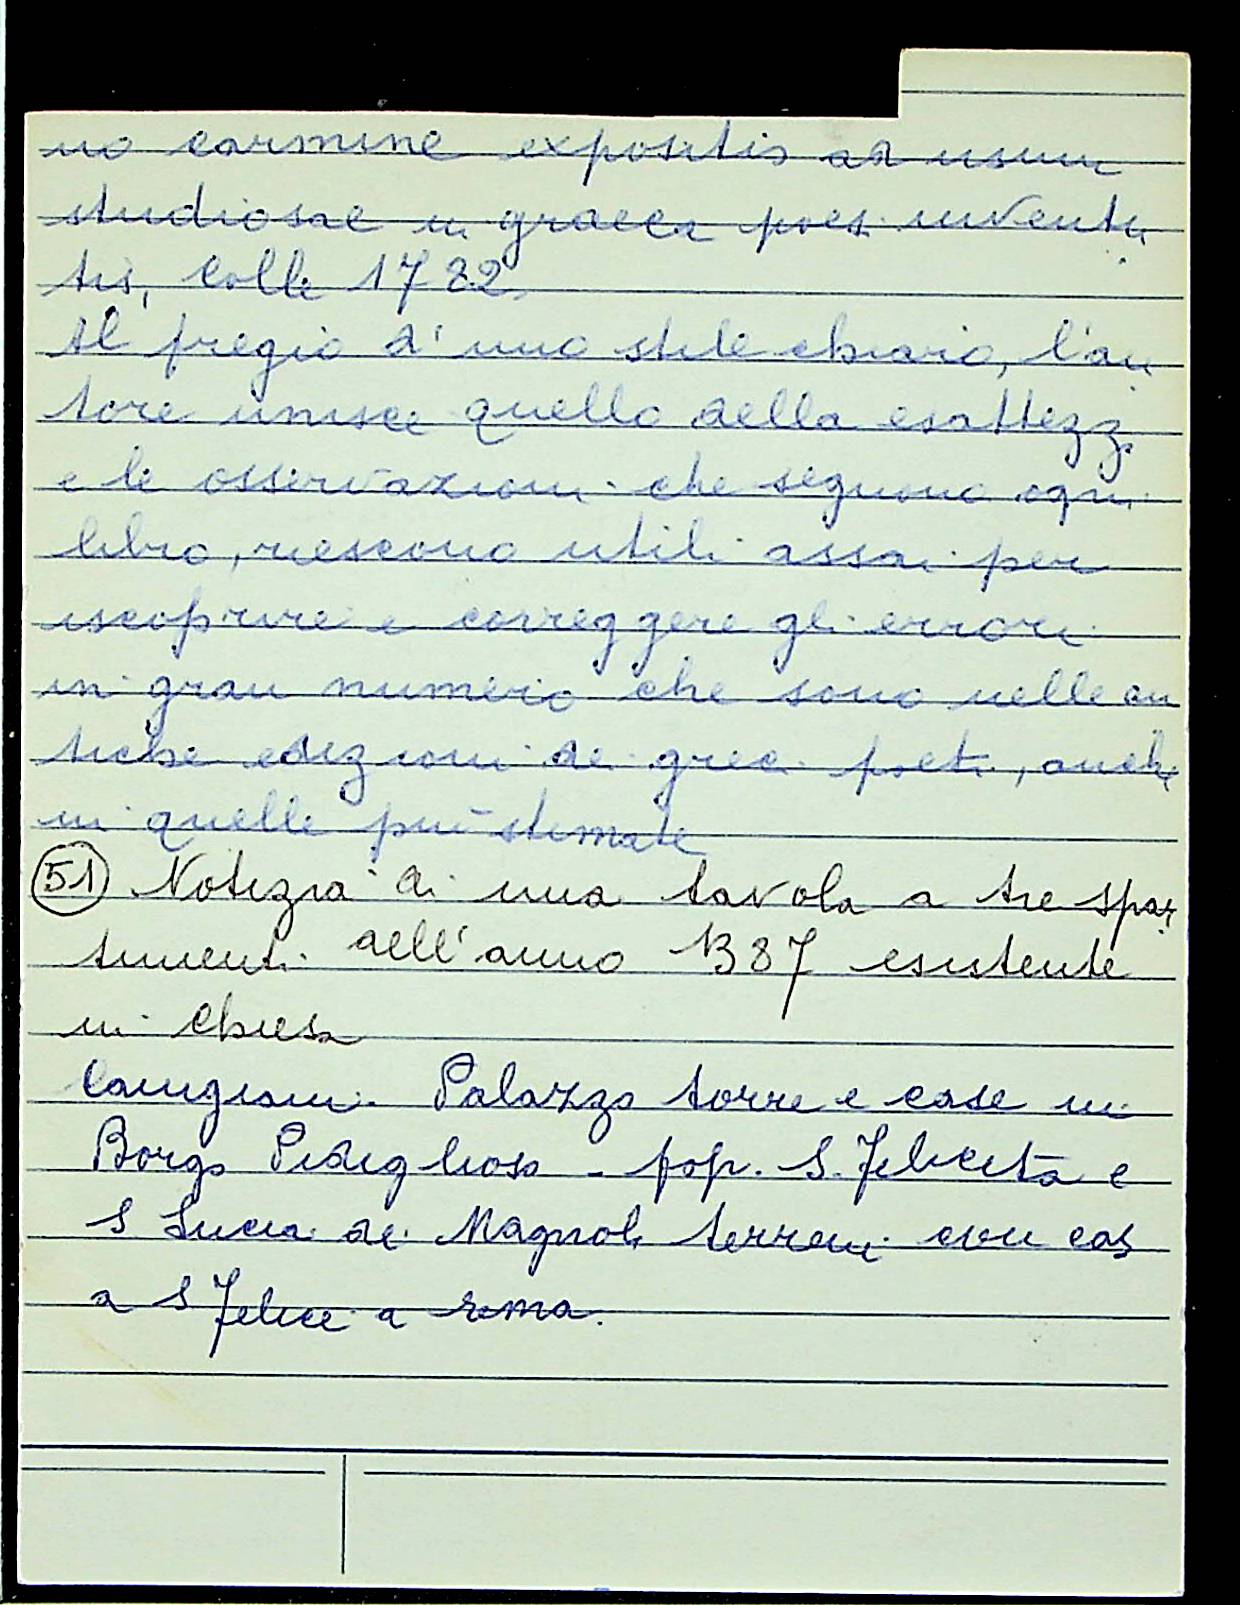 no carmine expositis ad usum
studiosae in graeca poes. inventu
tis, Colle 1782
Al fregio d'uno stile chiaro, l'au
tore unisce quello della esattezz.
e le osservazioni che seguono ogni
libro, riescono utili assai per
iscoprire e correggere gli errori
in gran numero che sono nelle an
tiche edizioni de greci poeti, anche
in quelle più stimate
(51) Notizia di una tavola a tre spar
timenti dell'anno 1387 esistente
in chiesa
Canigiani. Palazzo torre e case in
Borgo Pidiglioso - pop. S. Felicita e
S Lucia de Magnoli terreni con cas
a S Felice a Ema.